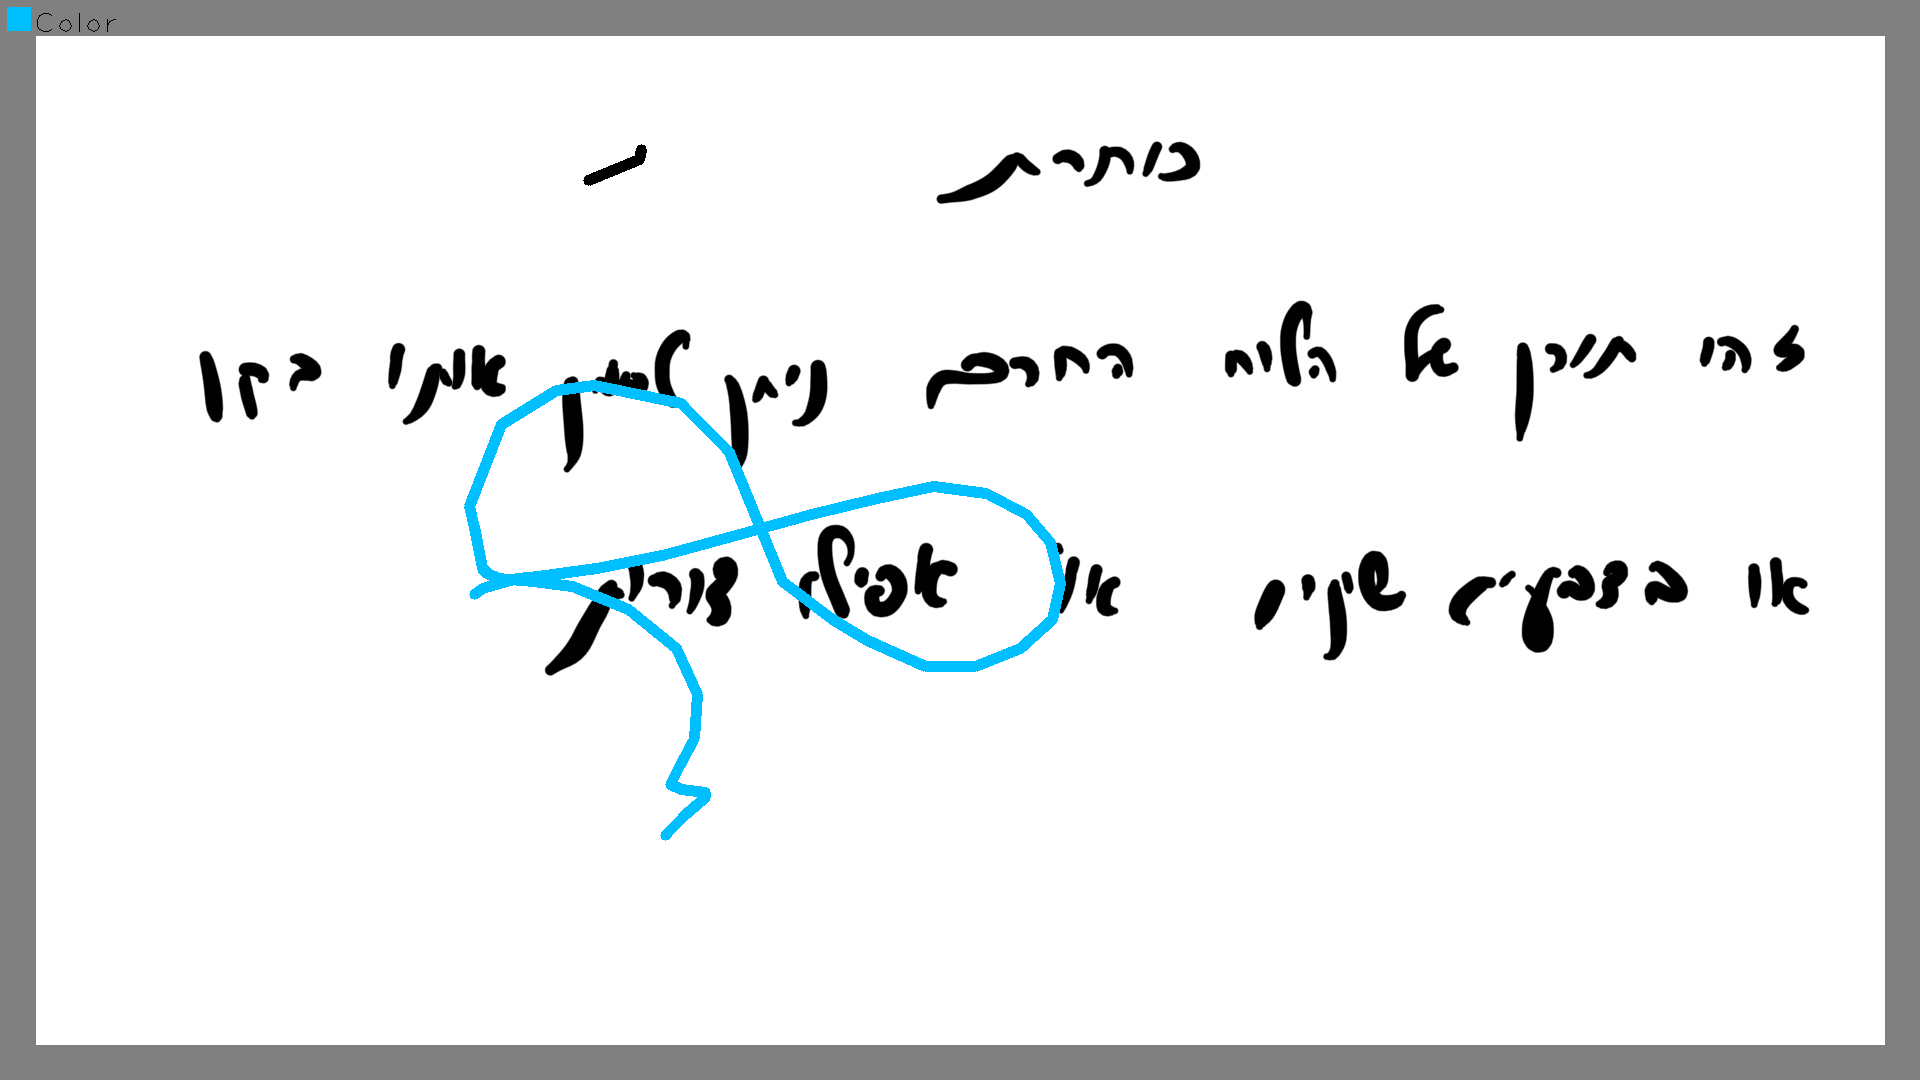 Color
כותרת
זהו תורן אל הלוח החרם ניתן אותו בקן
או בצבעים שינים או אפילו צורות